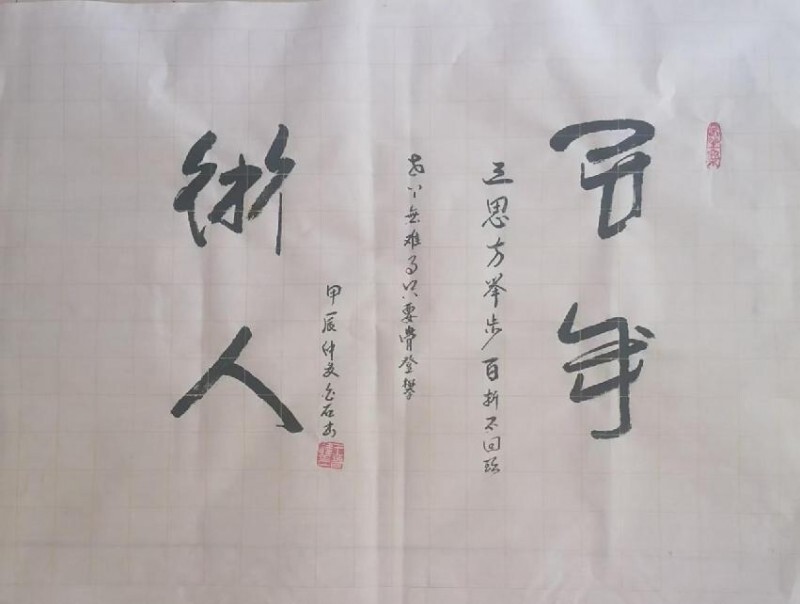 三思方举步百折不回頭
世上無难事只要肯登攀
甲辰仲夏金石书
術人